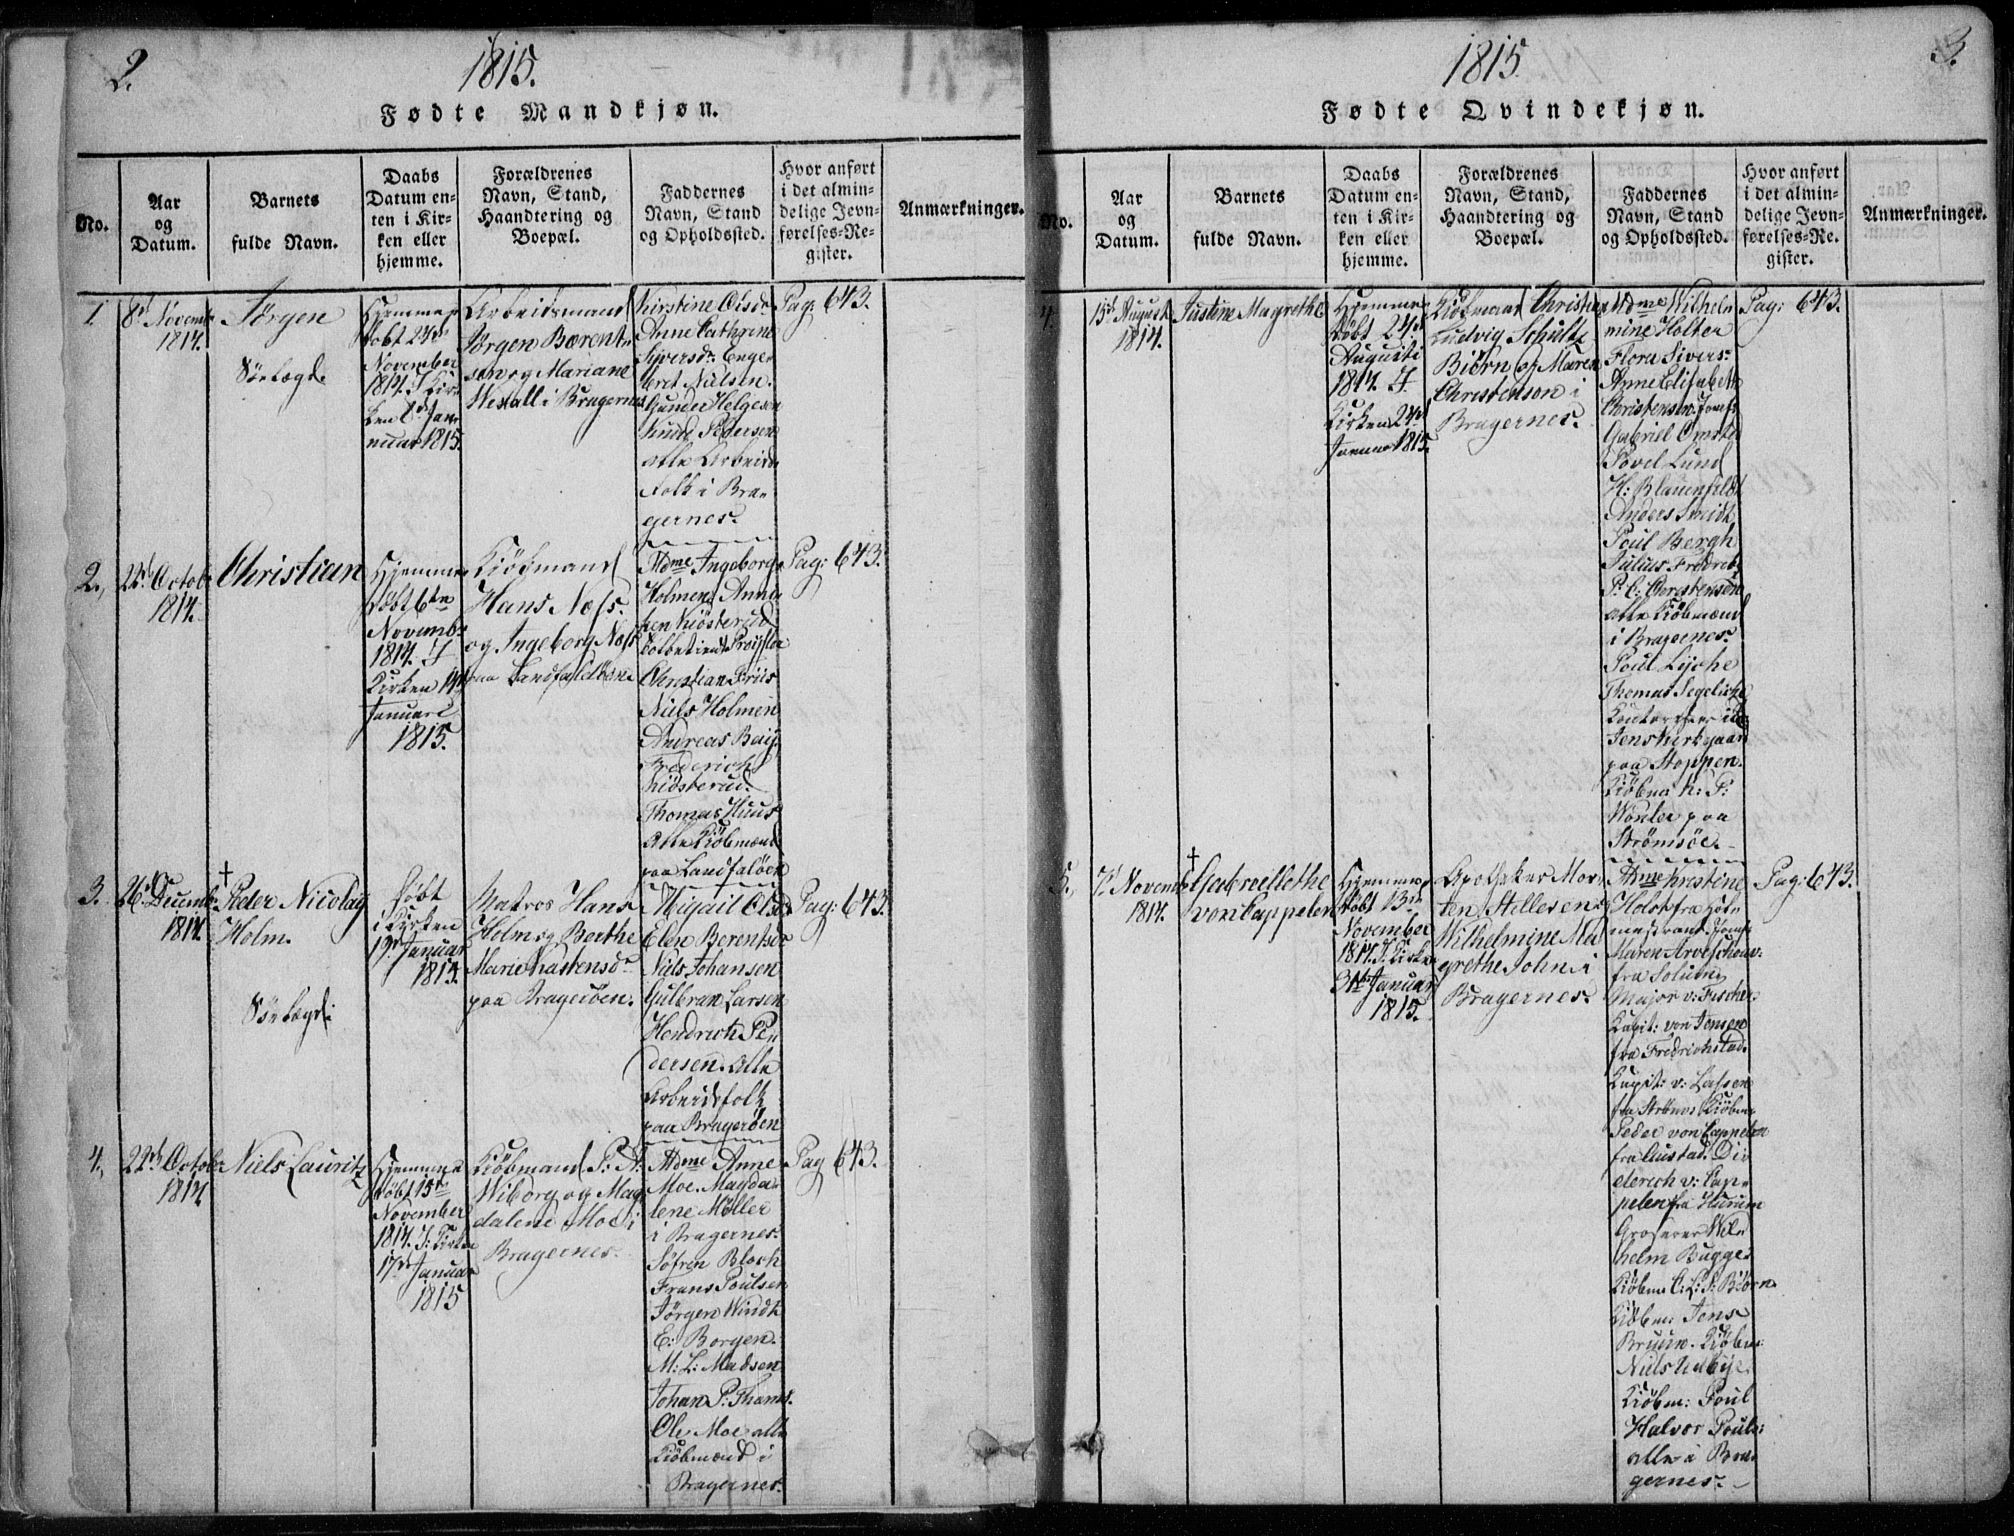 2.
1815.
Fødte Mandkjøn.
No.
Aar
og
Datum.
Barnets
fulde Navn.
Daabs
Datum en-
ten i Kir-
ken eller
hjemme.
Forældrenes
Navn, Stand,
Haandtering og
Boepæl.
Faddernes
Navn, Stand
og Opholdssted.
Hvor anført
i det almin-
delige Jevn-
førelses-Re-
gister.
Anmærkninger.
1.
8d Novemb:
1814.
Jørgen
Hjemme
døbt
November
1814. I Kir-
ken
Januar 1815.
Arbeidsmand
Jørgen Bærent-
sen og Mariane
Westall i Bragernes
Kirstine Olsdr
Anne Cathrine
Syversdr Enge-
bret Nielsen
Gunder Helgesen
Knud Pedersen
alle Arbeids
Folk i Bra-
gernes.
Pag: 643.
2.
22d Octob:
1814.
Christian
Hjemme
døbt 6te
Novemb:
1814. I
Kirken
Januari
1815.
Kiöbmand
Hans Næss
og Ingeborg Næss
paa Landfaldöen
Mdme Ingeborg
Holmen, Anni-
ken Kiösterud
Christian Friis
Niels Holmen
Andreas
Frederich
Kiösterud.
Thomas Huus
alle Kiöbmænd
paa Landfalöen
Pag: 643.
3.
26d Decemb:
1814.
† Peder Nicolay
Holm.
Døbt
i Kirken
13d Januar
1815.
Matros Hans
Holm og Berthe
Marie Larsensdr
paa Bragerøen.
Abigail Olsdr
Elen Berentsdr
Niels Johansen
Gulbran Larsen
Hendrich Pe-
dersen. alle
Arbeidsfolk
paa Bragerøen
Pag: 643.
4.
22d Octob:
1814.
Niels Lauritz
Hjemme
døbt 15de
November
1814. I Kirken
17d Januar
1815
Kiöbmand P: N:
Wiborg og Mag-
dalene Moe i
Bragernes.
Mdme Anne
Moe. Magda-
lene Møller
i Bragernes.
Søfren Bloch
Frans Poulsen
Jörgen Windt
E: Borgen.
M: L: Madsen
Johan P: Thams.
Ole Moe alle
Kiöbmænd i
Bragernes.
Pag 643.
1815.
3.
Fødte Qvindekjøn.
No.
Aar
og
Datum.
Barnets
fulde Navn.
Daabs
Datum en-
ten i Kir-
ken eller
hjemme.
Forældrenes
Navn, Stand,
Haandtering og
Boepæl.
Faddernes
Navn, Stand
og Opholdssted.
Hvor anført
i det almin-
delige Jevn-
førelses-Re-
gister.
Anmærkninger.
4.
15d August
1814.
Justine Magrethe
Hjemme
døbt 24d
Augusti
1814. I
Kirken 24d
Januar 1815.
Kiöbmand Christen
Ludvig Schultz
Biörn og Maren
Christensen i
Bragernes.
Mdme Wilhel-
mine Holter
Flora Sivers.
Anne Elisabeth
Christensen. Josef:
Gabriel Omsted
Povel Lund
H: Blauenfeldt
Anders Smidt
Poul Bergh
Julius Fredrich
P: C: Christensen
alle Kiöbmænd
i Bragernes.
Poul Lyche
Thomas Segelcke
Jens Kirkgaard
paa Stoppen.
Kiöbm
paa
Strömsöe.
Pag: 643.
5.
7d Novemb:
1814.
† Gabriellethe
von Cappelen
Hjemme
døbt 13d
November
1814. I Kirken
31te Januar
1815.
Apotheker Mor-
ten Stillesen
Wilhelmine Ma-
grethe John i
Bragernes.
Mdme Kristine
Holst fra Holm-
Maren
fra Solum
Major v: Fischer
Kapit: von Jensen
fra Fredrichstad.
Kapit: v: Lassen
fra Ströms: Kiöbm:
Peder von Cappelen
fra Austad. Di-
derich v: Cap-
pelen fra Hurum
Grosserer Wil-
helm Bugge.
Kiöbm: C: L: S: Biörn
Kiöbm: Jens
Bruun. Kiöbm:
Niels
Kiöbm: Poul
Halvor Pouls:
alle i Bra-
gernes.
Pag: 643.